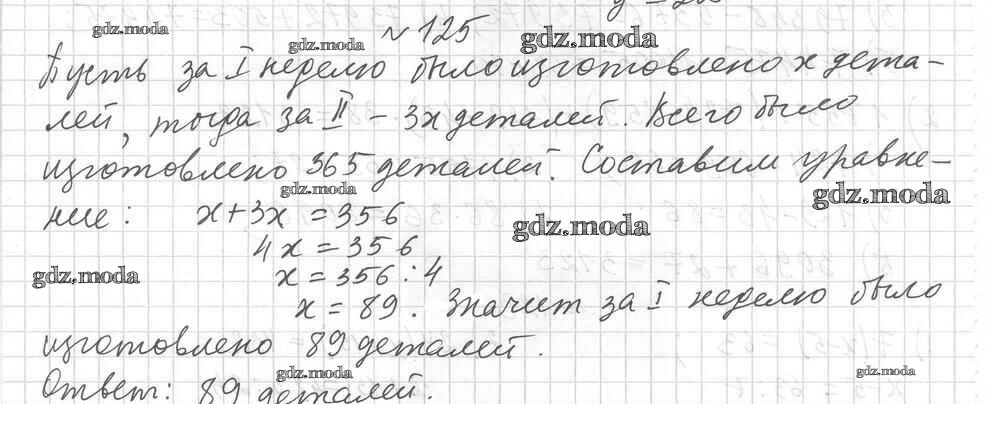 gdz.moda
№ 125
gdz.moda
gdz.moda
Пусть за I неделю было изготовлено x дета-
лей, тогда за II - 3x деталей. Всего было
изготовлено 365 деталей. Составим уравне-
gdz.moda
gdz.moda
ние: x+3x = 356
gdz.moda
4x = 356
gdz.moda
x = 356 : 4
x = 89. Значит за I неделю было
изготовлено 89 деталей.
gdz.moda
gdz.moda
Ответ: 89 деталей.